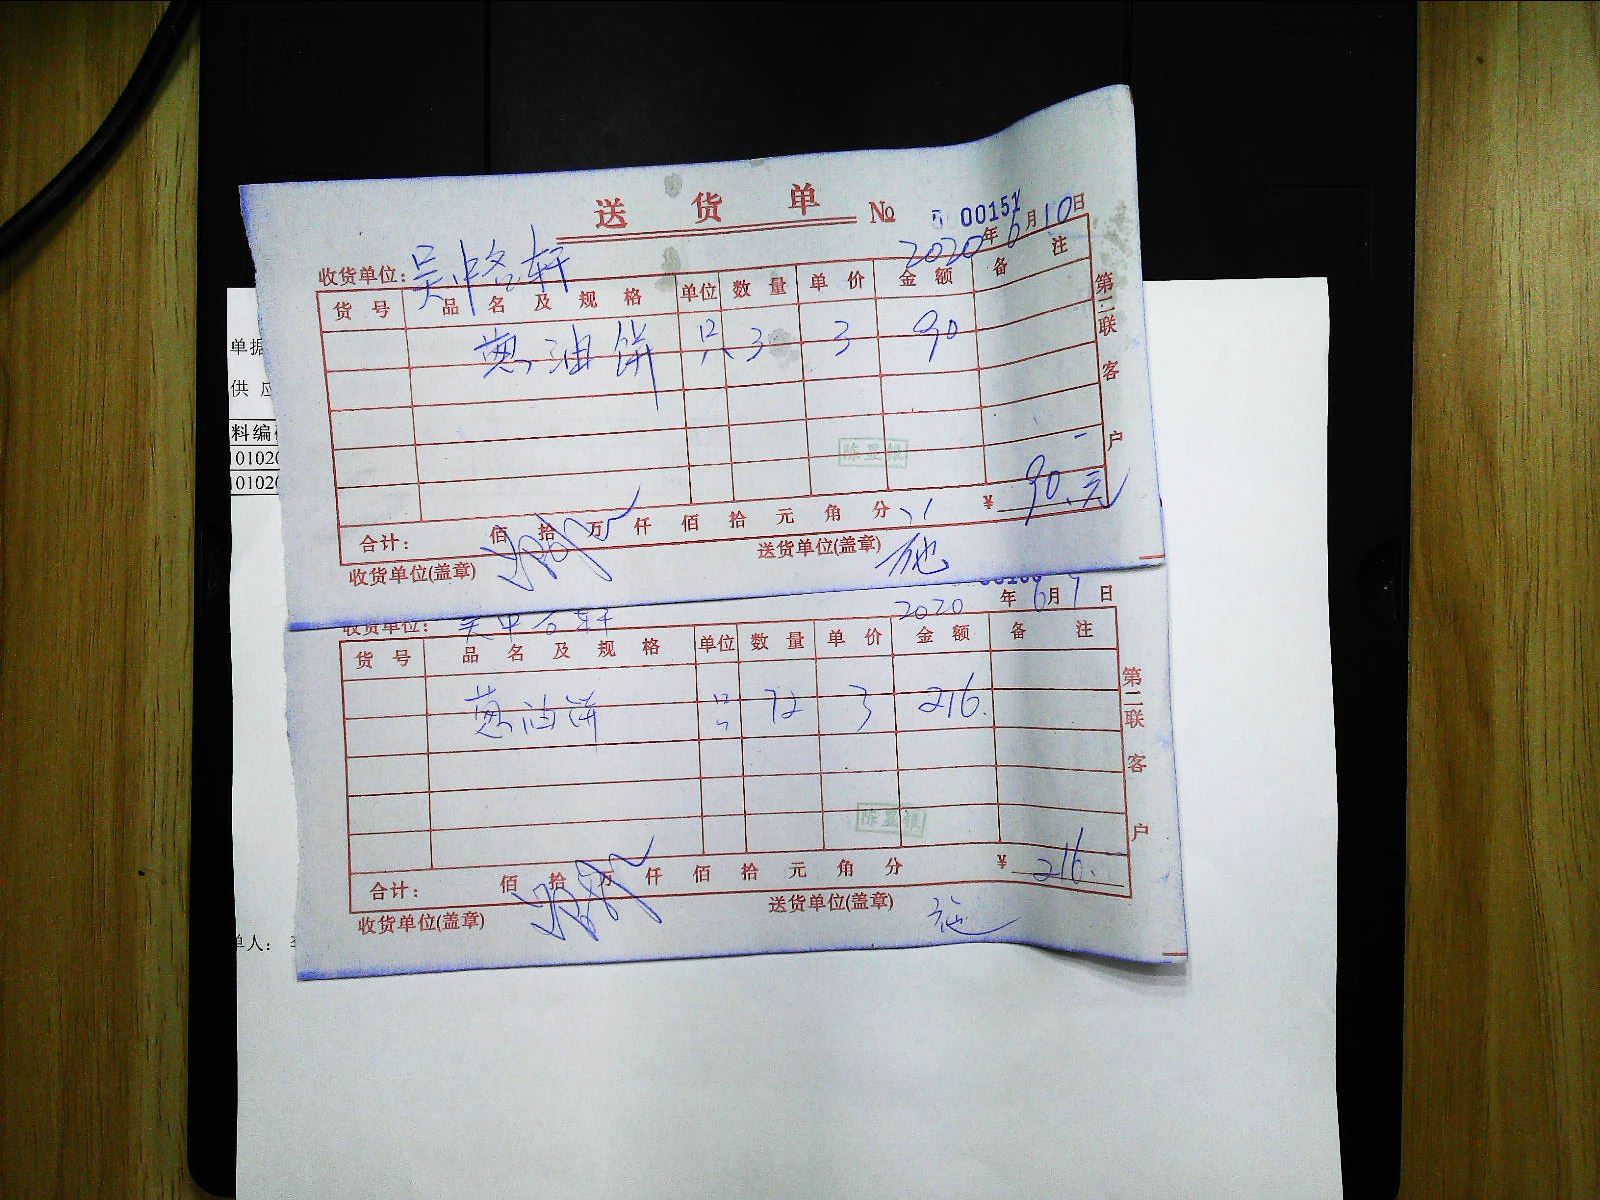 送 货 单 № 00151
2020年6月10日
收货单位:吴中名轩
货 号 品 名 及 规 格 单位 数 量 单 价 金 额 备 注
葱油饼 只 3 3 90
第二联 客户
陈显银
合计: 佰 拾 万 仟 佰 拾 元 角 分 ¥ 90.元
收货单位(盖章) 送货单位(盖章)
单据
供 应
料编
10102
10102
2020年6月9日
收货单位: 吴中名轩
货 号 品 名 及 规 格 单位 数 量 单 价 金 额 备 注
葱油饼 只 72 3 216.
第二联 客户
陈显银
合计: 佰 拾 万 仟 佰 拾 元 角 分 ¥ 216.
收货单位(盖章) 送货单位(盖章)
单人: